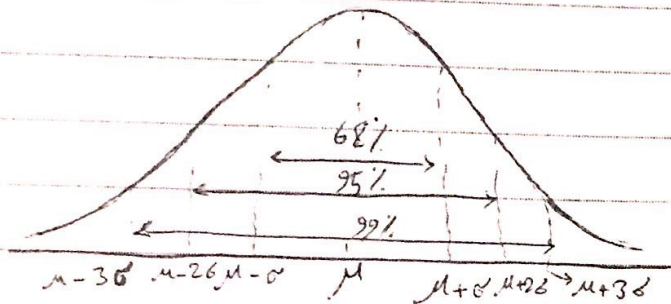 68%
95%
99%
μ-3σ μ-2σ μ-σ μ μ+σ μ+2σ μ+3σ